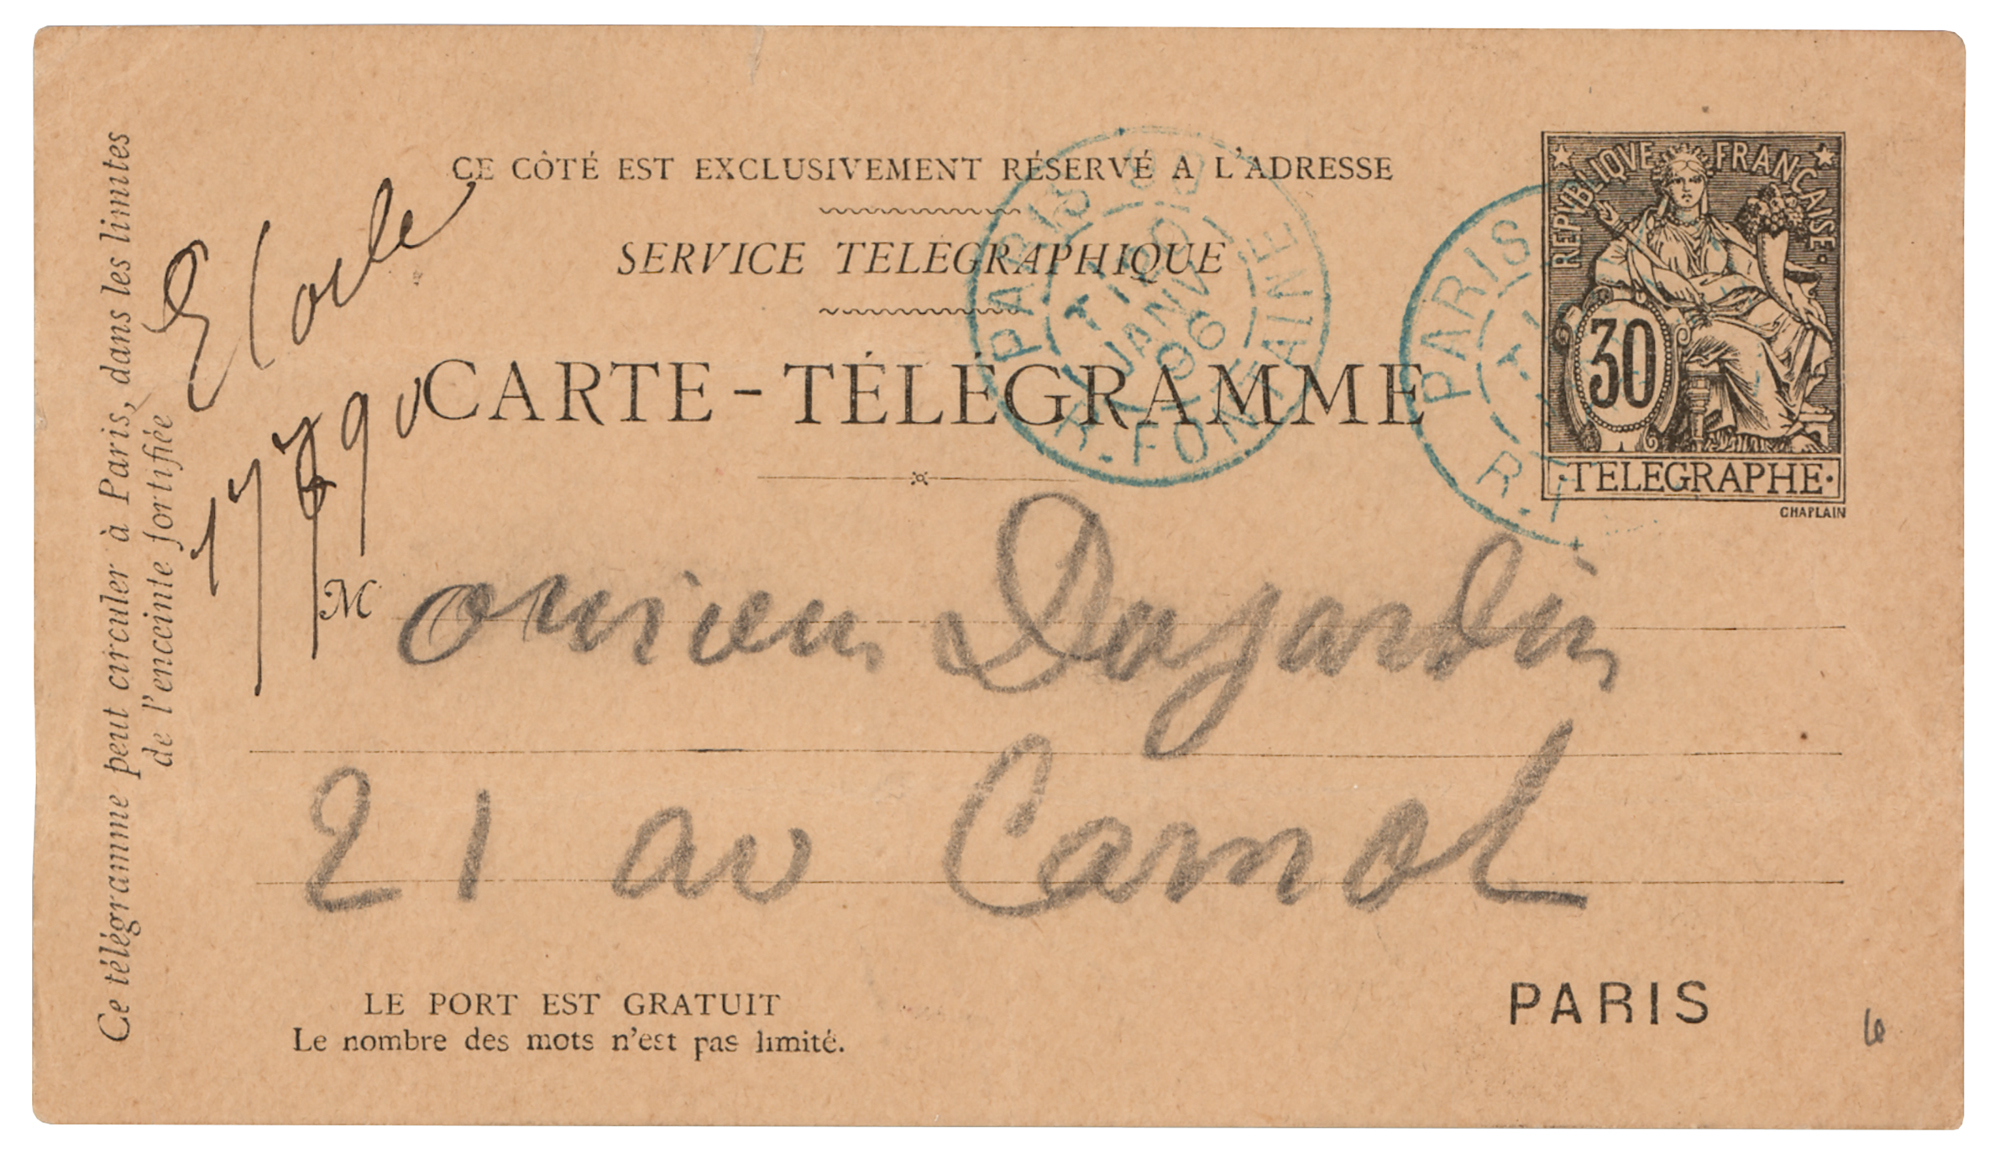 CE CÔTÉ EST EXCLUSIVEMENT RÉSERVÉ A L'ADRESSE
SERVICE TELEGRAPHIQUE
CARTE-TÉLÉGRAMME
REPVBLIQVE FRANÇAISE
30
·TELEGRAPHE·
CHAPLAIN
PARIS
JANV
96
R. FONTAINE
PARIS
R. F
Etoile
Ce télégramme peut circuler à Paris, dans les limites
de l'enceinte fortifiée
Monsieur Dujardin
21 av Carnot
LE PORT EST GRATUIT
Le nombre des mots n'est pas limité.
PARIS
6